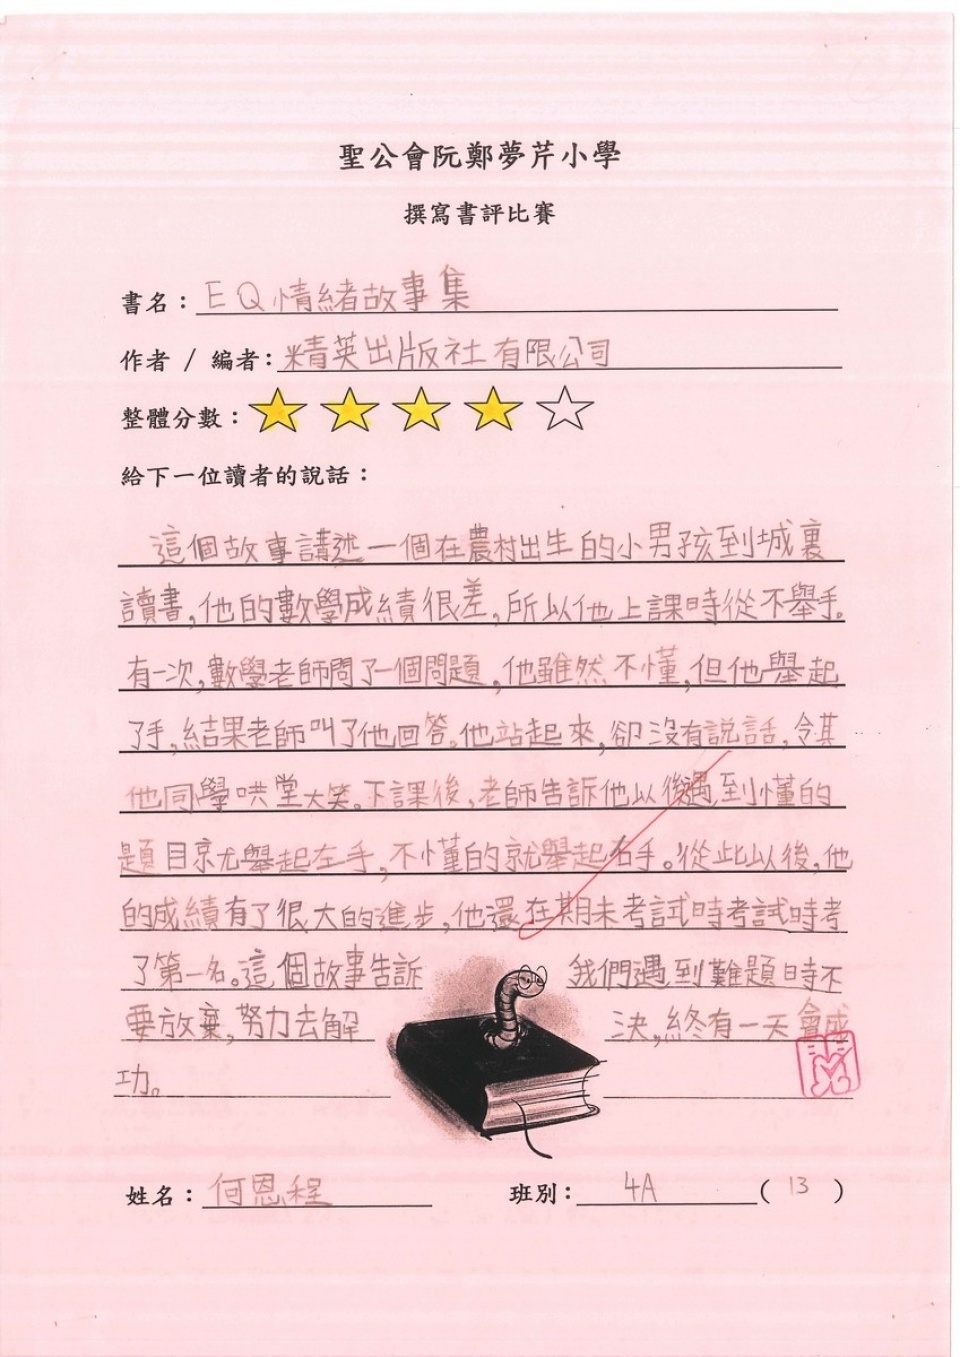 聖公會阮鄭夢芹小學
撰寫書評比賽
書名：EQ情緒故事集
作者 / 編者：精英出版社有限公司
整體分數：
給下一位讀者的說話：
這個故事講述一個在農村出生的小男孩到城裏
讀書,他的數學成績很差,所以他上課時從不舉手。
有一次,數學老師問了一個問題,他雖然不懂,但他舉起
了手,結果老師叫了他回答。他站起來,卻沒有説話,令其
他同學哄堂大笑。下課後,老師告訴他以後遇到懂的
題目就舉起左手,不懂的就舉起右手。從此以後,他
的成績有了很大的進步,他還在期未考試時考試時考
了第一名。這個故事告訴我們遇到難題時不
要放棄,努力去解決,終有一天會成
功。
姓名：何恩程 班別：4A ( 13 )